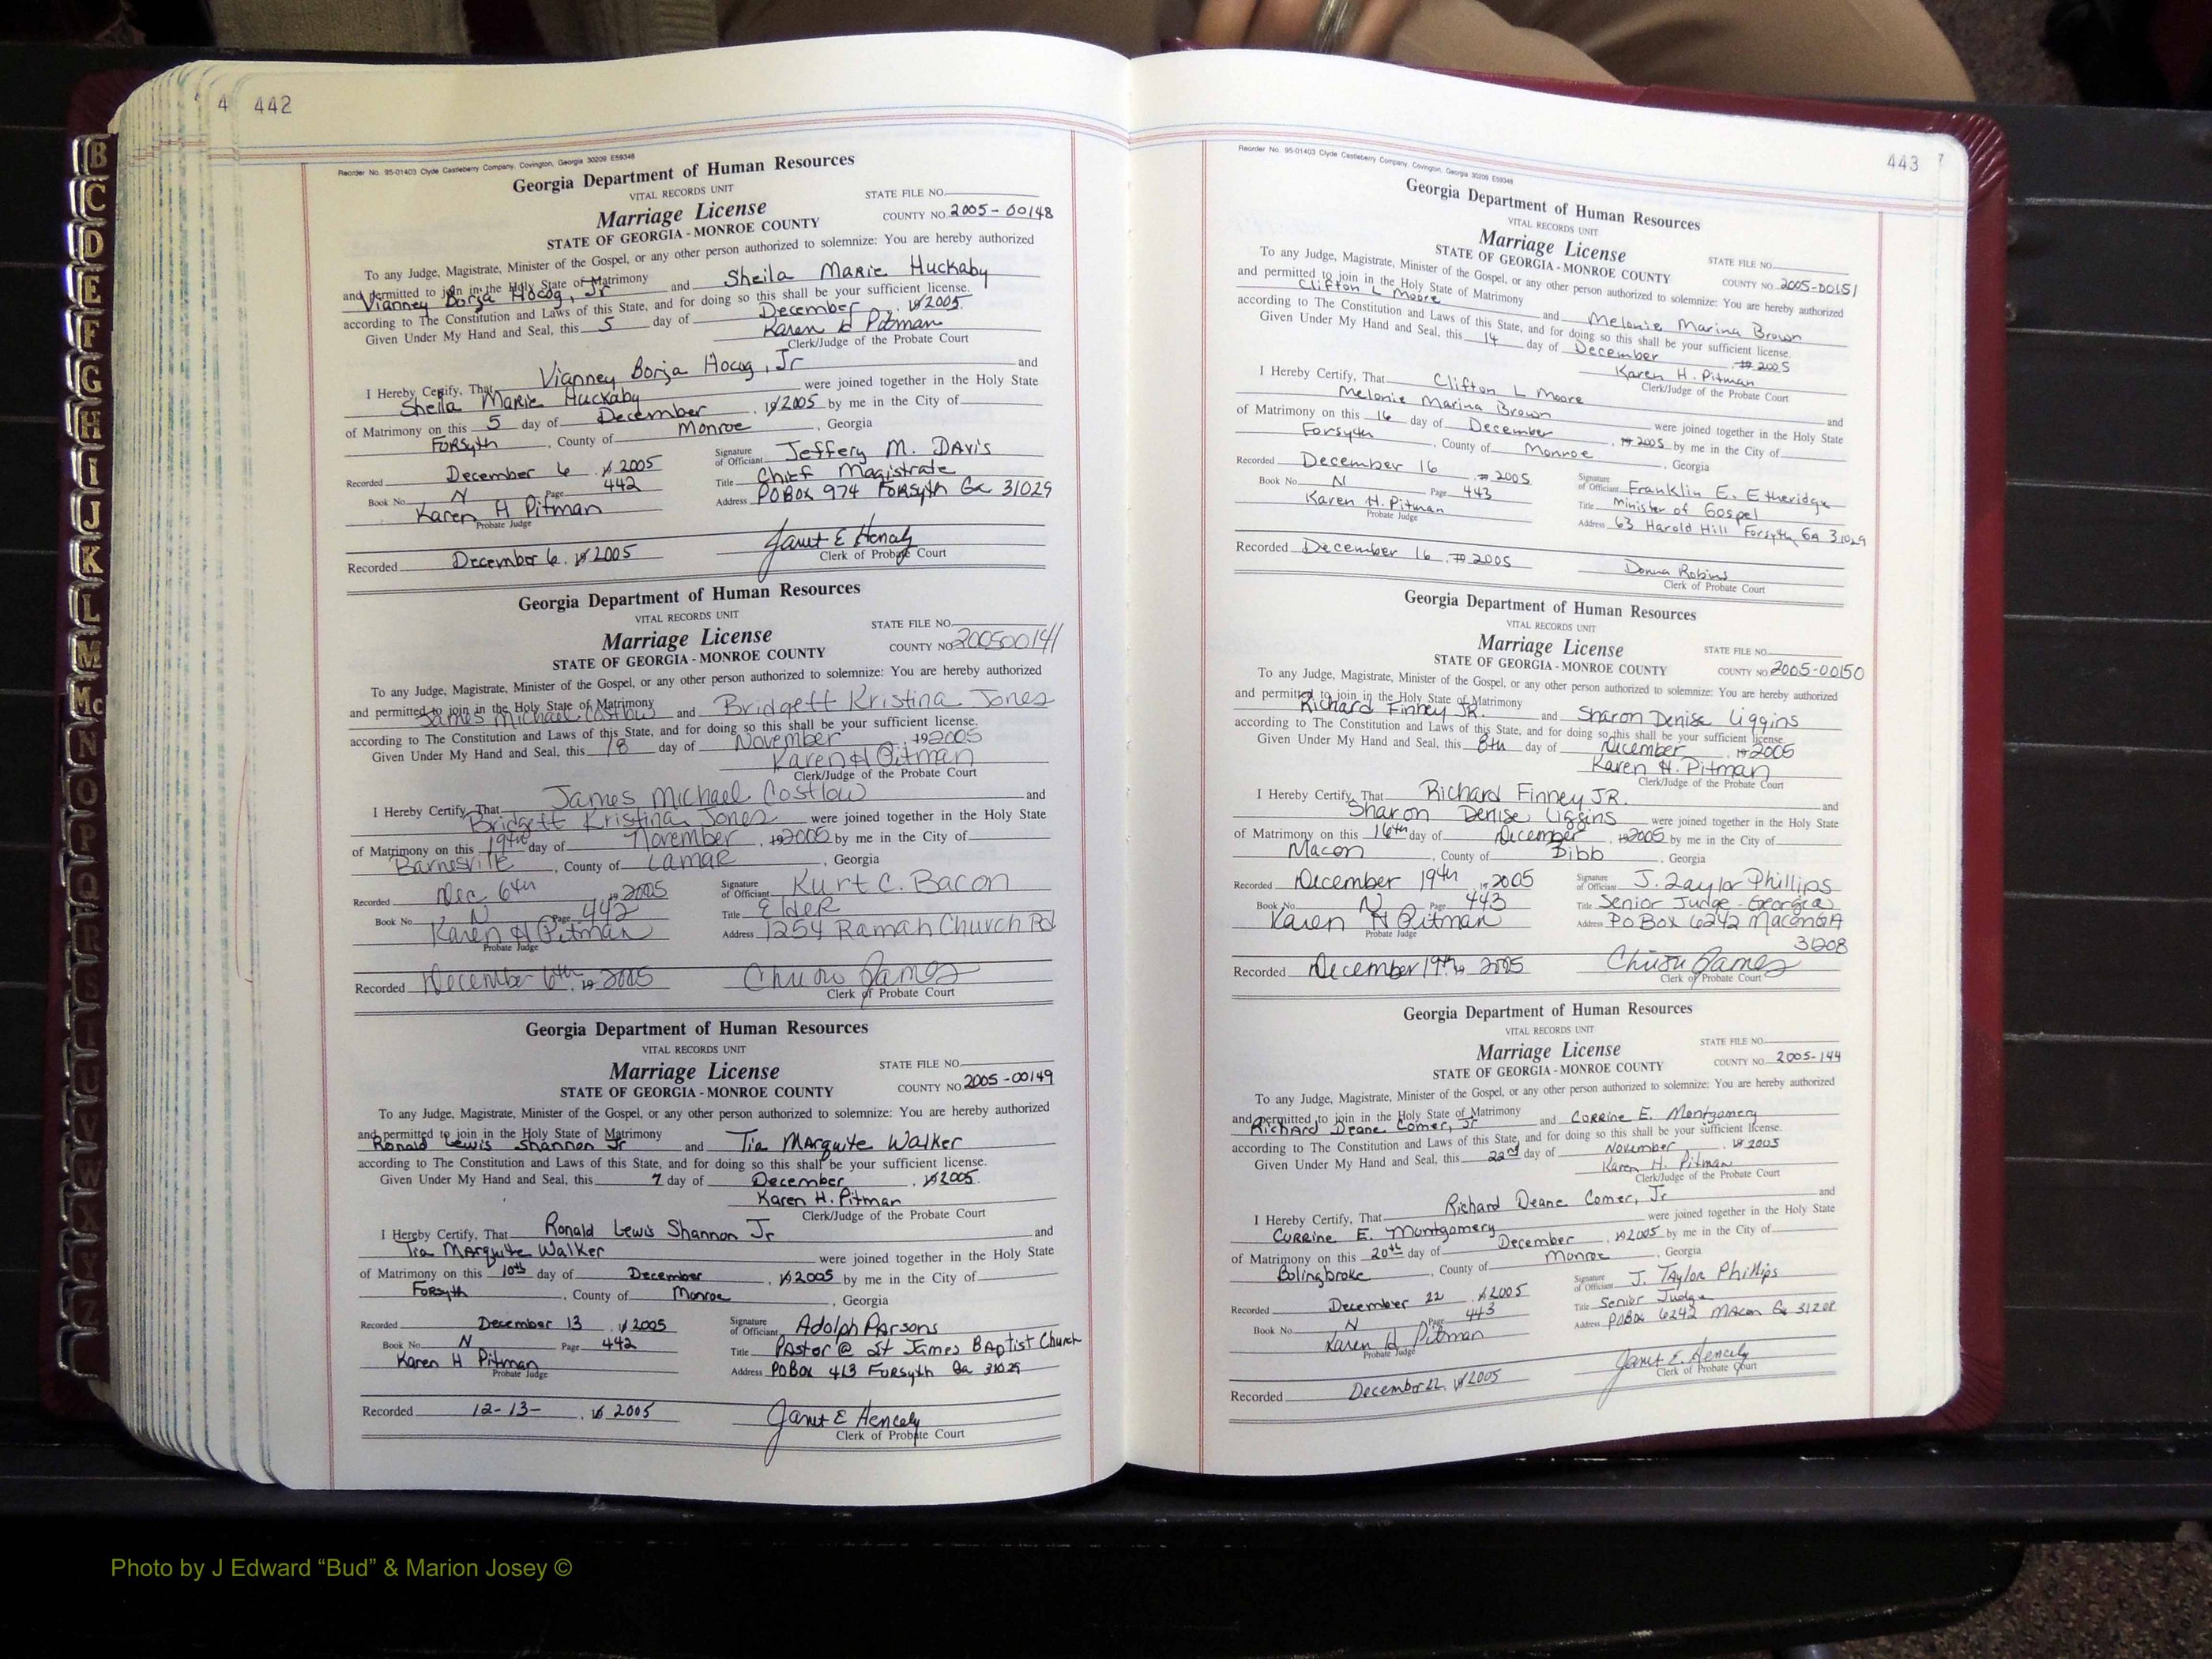 4 442
Reorder No. 95-01403 Clyde Castleberry Company, Covington, Georgia 30209 E59348
Georgia Department of Human Resources
VITAL RECORDS UNIT
STATE FILE NO.
Marriage License
COUNTY NO. 2005-00148
STATE OF GEORGIA - MONROE COUNTY
To any Judge, Magistrate, Minister of the Gospel, or any other person authorized to solemnize: You are hereby authorized
and permitted to join in the Holy State of Matrimony
Vianney Borja Hocog, Jr and Sheila Marie Huckaby
according to The Constitution and Laws of this State, and for doing so this shall be your sufficient license.
Given Under My Hand and Seal, this 5 day of December, 19 2005.
Karen H Pitman
Clerk/Judge of the Probate Court
I Hereby Certify, That Vianney Borja Hocog, Jr and
Sheila Marie Huckaby were joined together in the Holy State
of Matrimony on this 5 day of December, 19 2005 by me in the City of
Forsyth, County of Monroe, Georgia
Recorded December 6, 19 2005
Signature of Officiant Jeffery M. Davis
Book No. N Page 442
Title Chief Magistrate
Karen H Pitman
Address PO Box 974 Forsyth Ga 31029
Probate Judge
Recorded December 6, 19 2005
Janet E Hencely
Clerk of Probate Court
Georgia Department of Human Resources
VITAL RECORDS UNIT
STATE FILE NO.
Marriage License
COUNTY NO. 200500141
STATE OF GEORGIA - MONROE COUNTY
To any Judge, Magistrate, Minister of the Gospel, or any other person authorized to solemnize: You are hereby authorized
and permitted to join in the Holy State of Matrimony
James Michael Costlow and Bridgett Kristina Jones
according to The Constitution and Laws of this State, and for doing so this shall be your sufficient license.
Given Under My Hand and Seal, this 18 day of November, 19 2005
Karen H Pitman
Clerk/Judge of the Probate Court
I Hereby Certify, That James Michael Costlow and
Bridgett Kristina Jones were joined together in the Holy State
of Matrimony on this 19th day of November, 19 2005 by me in the City of
Barnesville, County of Lamar, Georgia
Recorded Dec. 6th, 19 2005
Signature of Officiant Kurt C. Bacon
Book No. N Page 442
Title Elder
Karen H Pitman
Address 1254 Ramah Church Rd
Probate Judge
Recorded December 6th, 19 2005
James
Clerk of Probate Court
Georgia Department of Human Resources
VITAL RECORDS UNIT
STATE FILE NO.
Marriage License
COUNTY NO. 2005-00149
STATE OF GEORGIA - MONROE COUNTY
To any Judge, Magistrate, Minister of the Gospel, or any other person authorized to solemnize: You are hereby authorized
and permitted to join in the Holy State of Matrimony
Ronald Lewis Shannon Jr and Tia Marquite Walker
according to The Constitution and Laws of this State, and for doing so this shall be your sufficient license.
Given Under My Hand and Seal, this 7 day of December, 19 2005.
Karen H. Pitman
Clerk/Judge of the Probate Court
I Hereby Certify, That Ronald Lewis Shannon Jr and
Tia Marquite Walker were joined together in the Holy State
of Matrimony on this 10th day of December, 19 2005 by me in the City of
Forsyth, County of Monroe, Georgia
Recorded December 13, 19 2005
Signature of Officiant Adolph Parsons
Book No. N Page 442
Title Pastor @ St James Baptist Church
Karen H Pitman
Address PO Box 413 Forsyth Ga 31029
Probate Judge
Recorded 12-13-, 19 2005
Janet E Hencely
Clerk of Probate Court
443
Reorder No. 95-01403 Clyde Castleberry Company, Covington, Georgia 30209 E59348
Georgia Department of Human Resources
VITAL RECORDS UNIT
Marriage License
STATE FILE NO.
STATE OF GEORGIA - MONROE COUNTY
COUNTY NO. 2005-00151
To any Judge, Magistrate, Minister of the Gospel, or any other person authorized to solemnize: You are hereby authorized
and permitted to join in the Holy State of Matrimony
Clifton L Moore and Melonie Marina Brown
according to The Constitution and Laws of this State, and for doing so this shall be your sufficient license.
Given Under My Hand and Seal, this 14 day of December, 19 2005
Karen H. Pitman
Clerk/Judge of the Probate Court
I Hereby Certify, That Clifton L Moore and
Melonie Marina Brown were joined together in the Holy State
of Matrimony on this 16 day of December, 19 2005 by me in the City of
Forsyth, County of Monroe, Georgia
Recorded December 16, 19 2005
Signature of Officiant Franklin E. Etheridge
Book No. N Page 443
Title minister of Gospel
Karen H. Pitman
Address 63 Harold Hill Forsyth GA 31029
Probate Judge
Recorded December 16, 19 2005
Donna Robins
Clerk of Probate Court
Georgia Department of Human Resources
VITAL RECORDS UNIT
Marriage License
STATE FILE NO.
STATE OF GEORGIA - MONROE COUNTY
COUNTY NO. 2005-00150
To any Judge, Magistrate, Minister of the Gospel, or any other person authorized to solemnize: You are hereby authorized
and permitted to join in the Holy State of Matrimony
Richard Finney JR. and Sharon Denise Liggins
according to The Constitution and Laws of this State, and for doing so this shall be your sufficient license.
Given Under My Hand and Seal, this 8th day of December, 19 2005
Karen H. Pitman
Clerk/Judge of the Probate Court
I Hereby Certify, That Richard Finney JR. and
Sharon Denise Liggins were joined together in the Holy State
of Matrimony on this 16th day of December, 19 2005 by me in the City of
Macon, County of Bibb, Georgia
Recorded December 19th, 19 2005
Signature of Officiant J. Taylor Phillips
Book No. N Page 443
Title Senior Judge - Georgia
Karen H Pitman
Address PO Box 6242 Macon GA
31208
Probate Judge
Recorded December 19th, 19 2005
James
Clerk of Probate Court
Georgia Department of Human Resources
VITAL RECORDS UNIT
STATE FILE NO.
Marriage License
COUNTY NO. 2005-144
STATE OF GEORGIA - MONROE COUNTY
To any Judge, Magistrate, Minister of the Gospel, or any other person authorized to solemnize: You are hereby authorized
and permitted to join in the Holy State of Matrimony
Richard Deane Comer, Jr and Corrine E. Montgomery
according to The Constitution and Laws of this State, and for doing so this shall be your sufficient license.
Given Under My Hand and Seal, this 22nd day of November, 19 2005
Karen H. Pitman
Clerk/Judge of the Probate Court
I Hereby Certify, That Richard Deane Comer, Jr and
Corrine E. Montgomery were joined together in the Holy State
of Matrimony on this 20th day of December, 19 2005 by me in the City of
Bolingbroke, County of Monroe, Georgia
Recorded December 22, 19 2005
Signature of Officiant J. Taylor Phillips
Book No. N Page 443
Title Senior Judge
Karen H Pitman
Address PO Box 6242 Macon Ga 31208
Probate Judge
Recorded December 22, 19 2005
Janet E. Hencely
Clerk of Probate Court
B
C
D
E
F
G
H
I
J
K
L
M
Mc
N
O
P
Q
R
S
T
U
V
W
X
Y
Z
Photo by J Edward “Bud” & Marion Josey ©